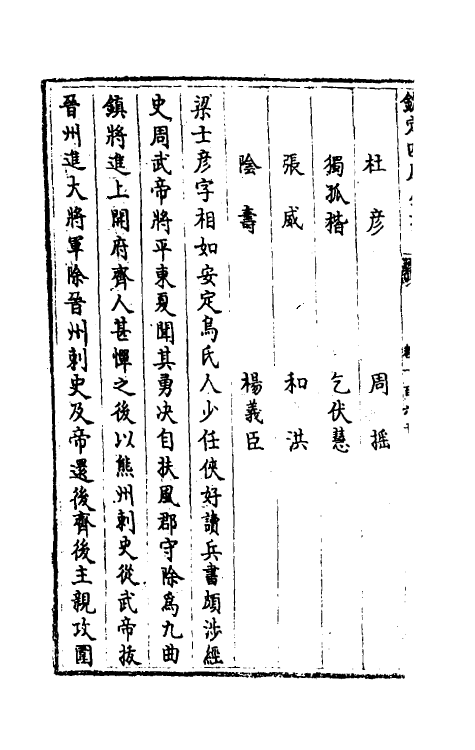 欽定四庫全書
杜彦　周摇
獨孤楷　乞伏慧
張威　和洪
陰壽　楊義臣
梁士彦字相如安定烏氏人少任俠好讀兵書頗涉經
史周武帝將平東夏聞其勇决自扶風郡守除爲九曲
鎮將進上開府齊人甚憚之後以熊州刺史從武帝拔
晉州進大將軍除晉州刺史及帝還後齊後主親攻圍